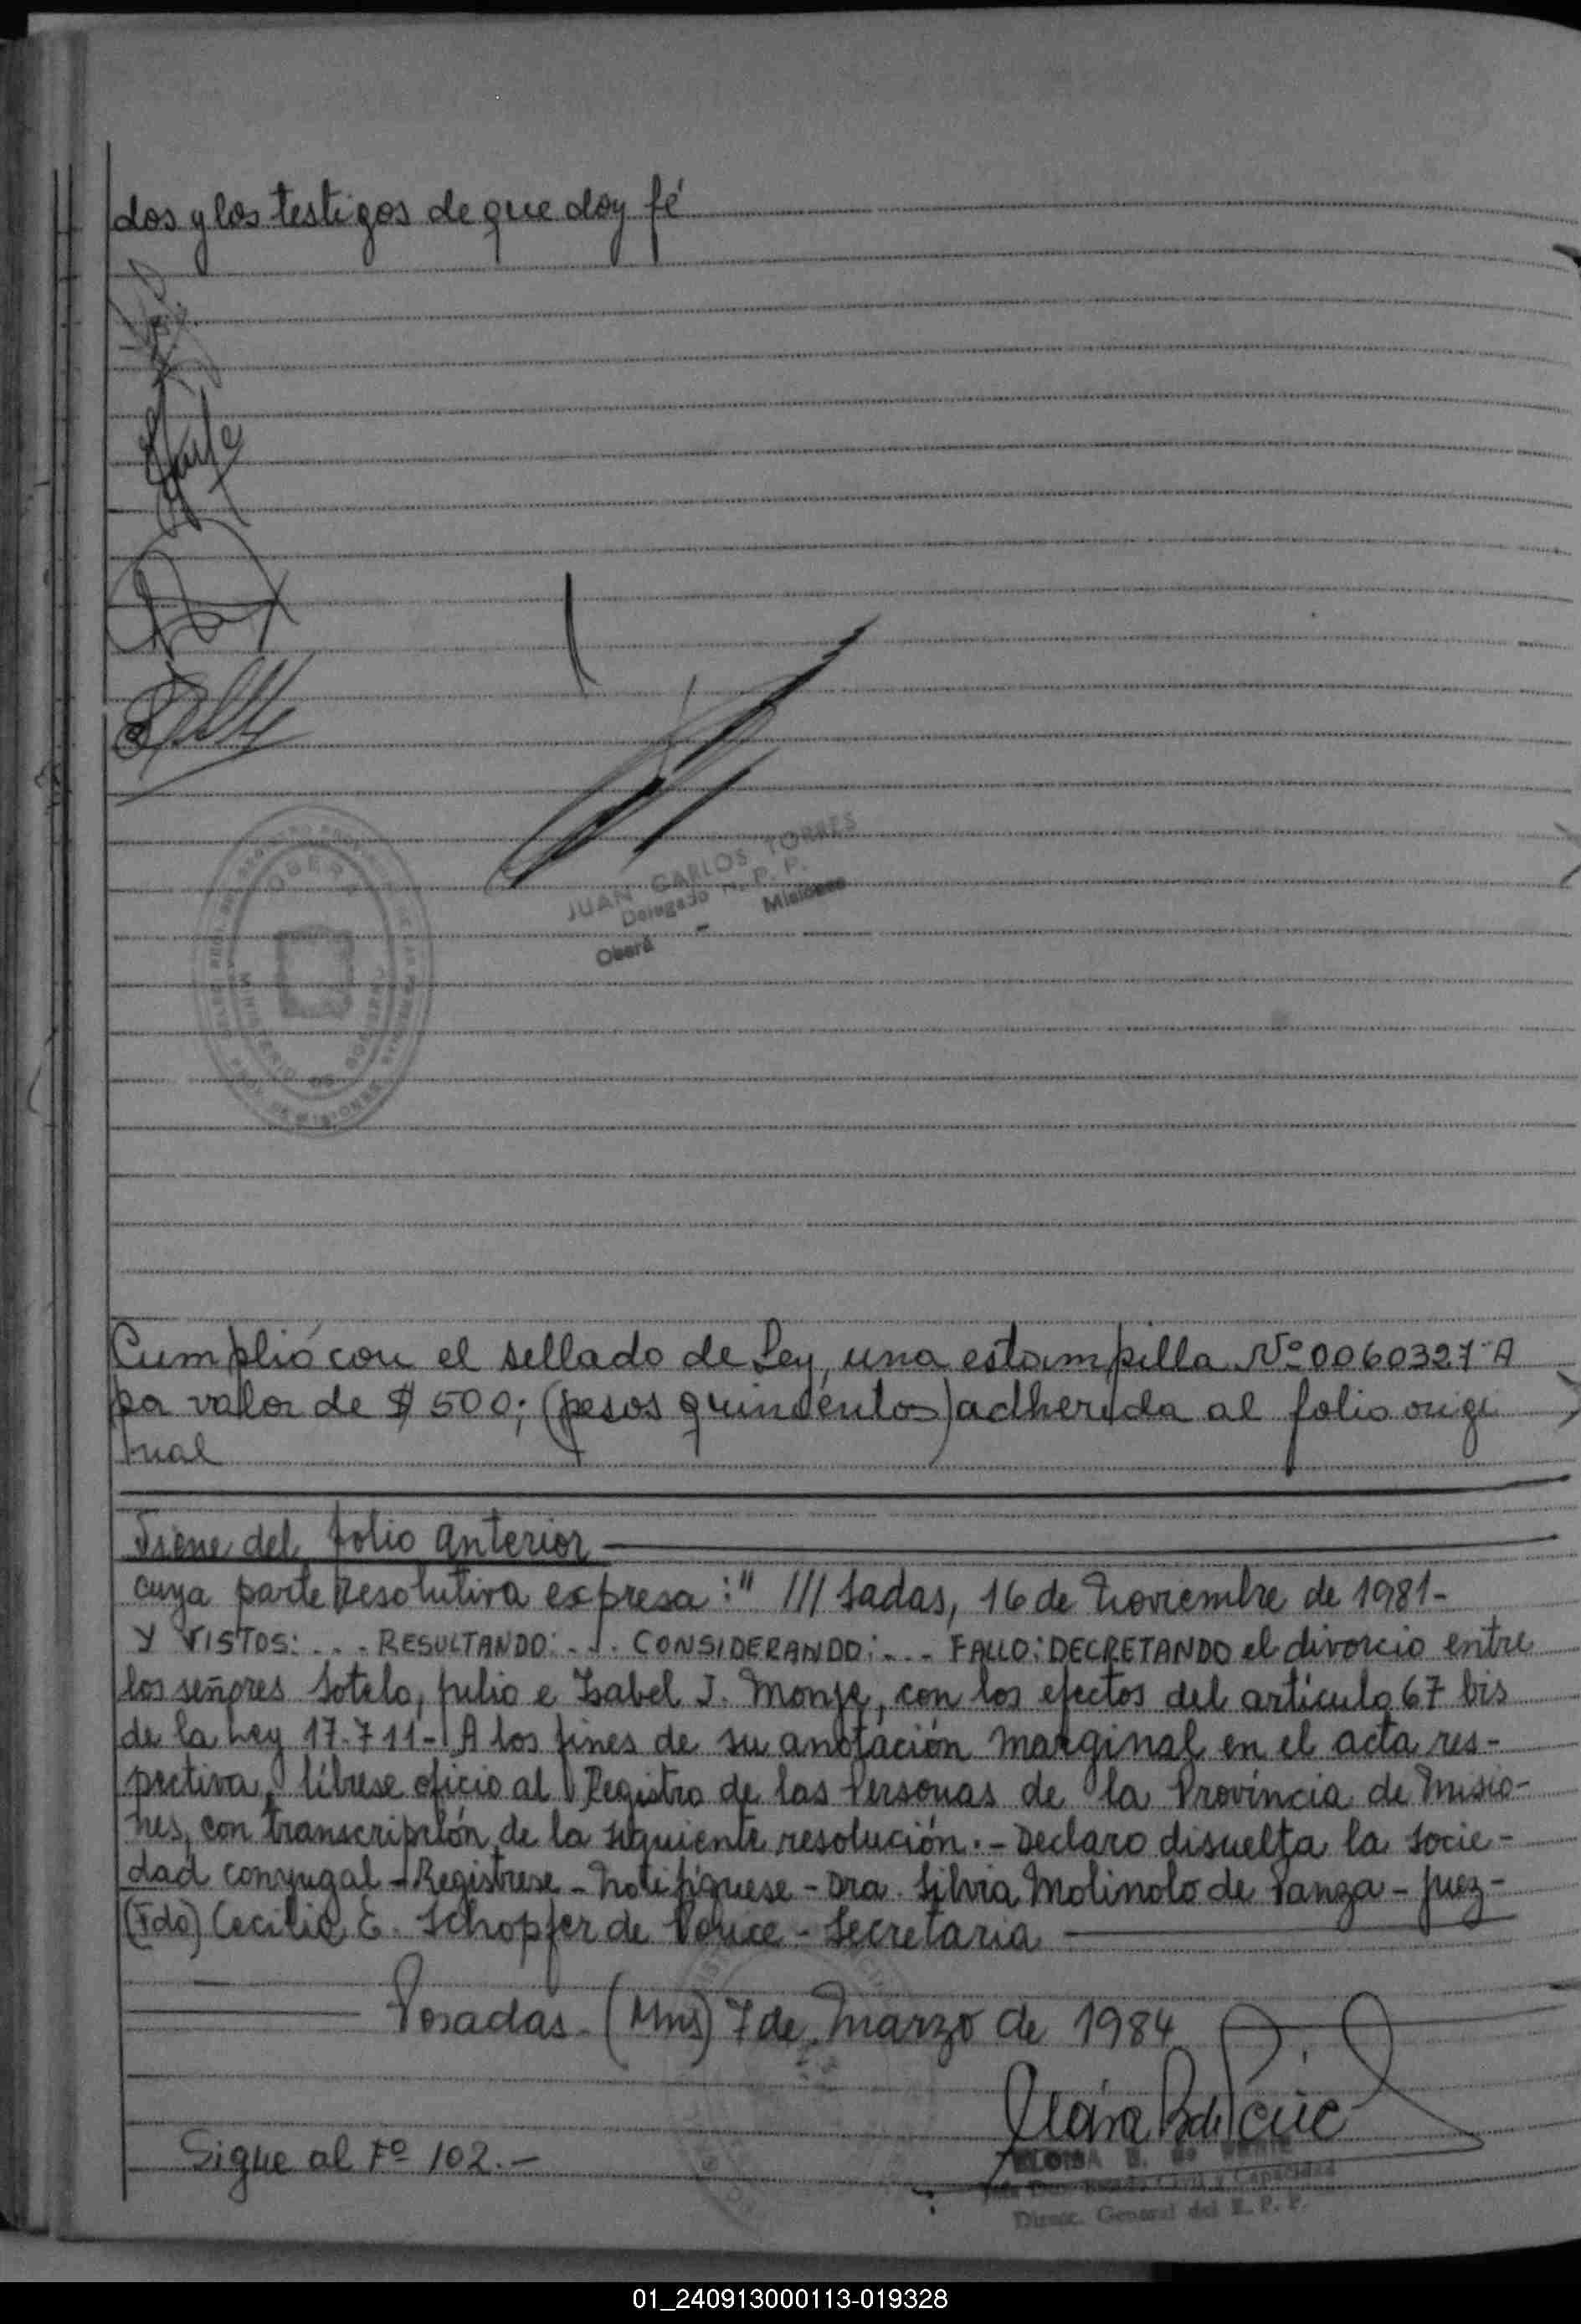 dos y los testigos de que doy fé
JUAN CARLOS TORRES
Delegado R. P. P.
Oberá - Misiones
OBERA
Cumplió con el sellado de Ley, una estampilla Nº 0060327-A
por valor de $ 500; (pesos quinientos) adherida al folio origi
nal
Viene del folio anterior
cuya parte resolutiva expresa: " /// sadas, 16 de Noviembre de 1981-
Y VISTOS: ... RESULTANDO: ... CONSIDERANDO: ... FALLO: DECRETANDO el divorcio entre
los señores Sotelo, Julio e Isabel J. Monje, con los efectos del artículo 67 bis
de la Ley 17.711- A los fines de su anotación marginal en el acta res-
pectiva, líbrese oficio al Registro de las Personas de la Provincia de Misio-
nes, con transcripción de la siguiente resolución.- Declaro disuelta la socie-
dad conyugal - Registrese - Notifíquese - Dra. Silvia Molinolo de Panza - Juez-
(Fdo) Cecilia E. Schopfer de Ponce - Secretaria
Posadas (Mns) 7 de Marzo de 1984
Sigue al Fº 102.-
Estado Civil y Capacidad
Direc. General del R. P. P.
01_240913000113-019328